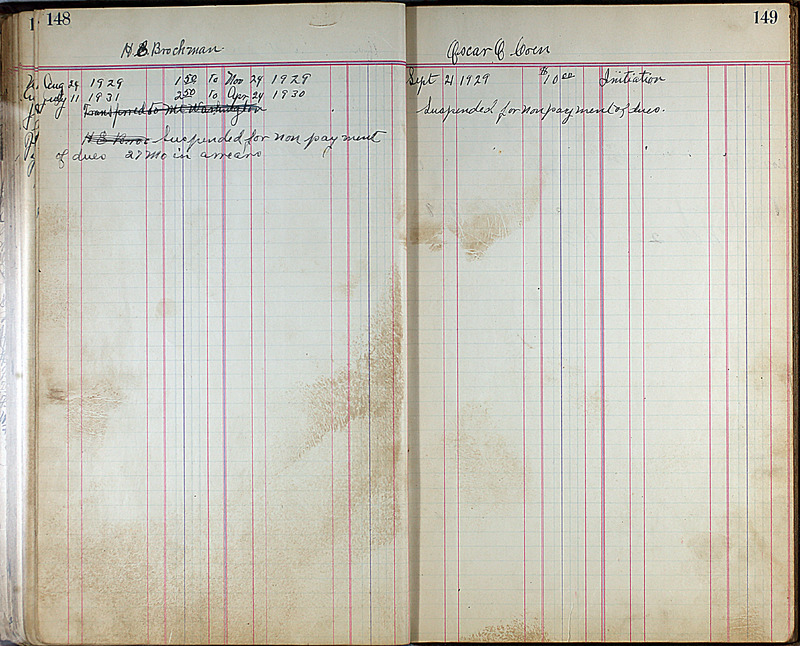 148
H E Brockman
Aug 24 1929 1 50 To Nov 24 1929
July 11 1931 2 50 To Apr 24 1930
Transferred to Mt Washington
H E Broc Suspended for non payment
of dues 27 Mo in arrears
149
Oscar C Coen
Sept 21 1929 $10 00 Initiation
Suspended for nonpayment of dues.